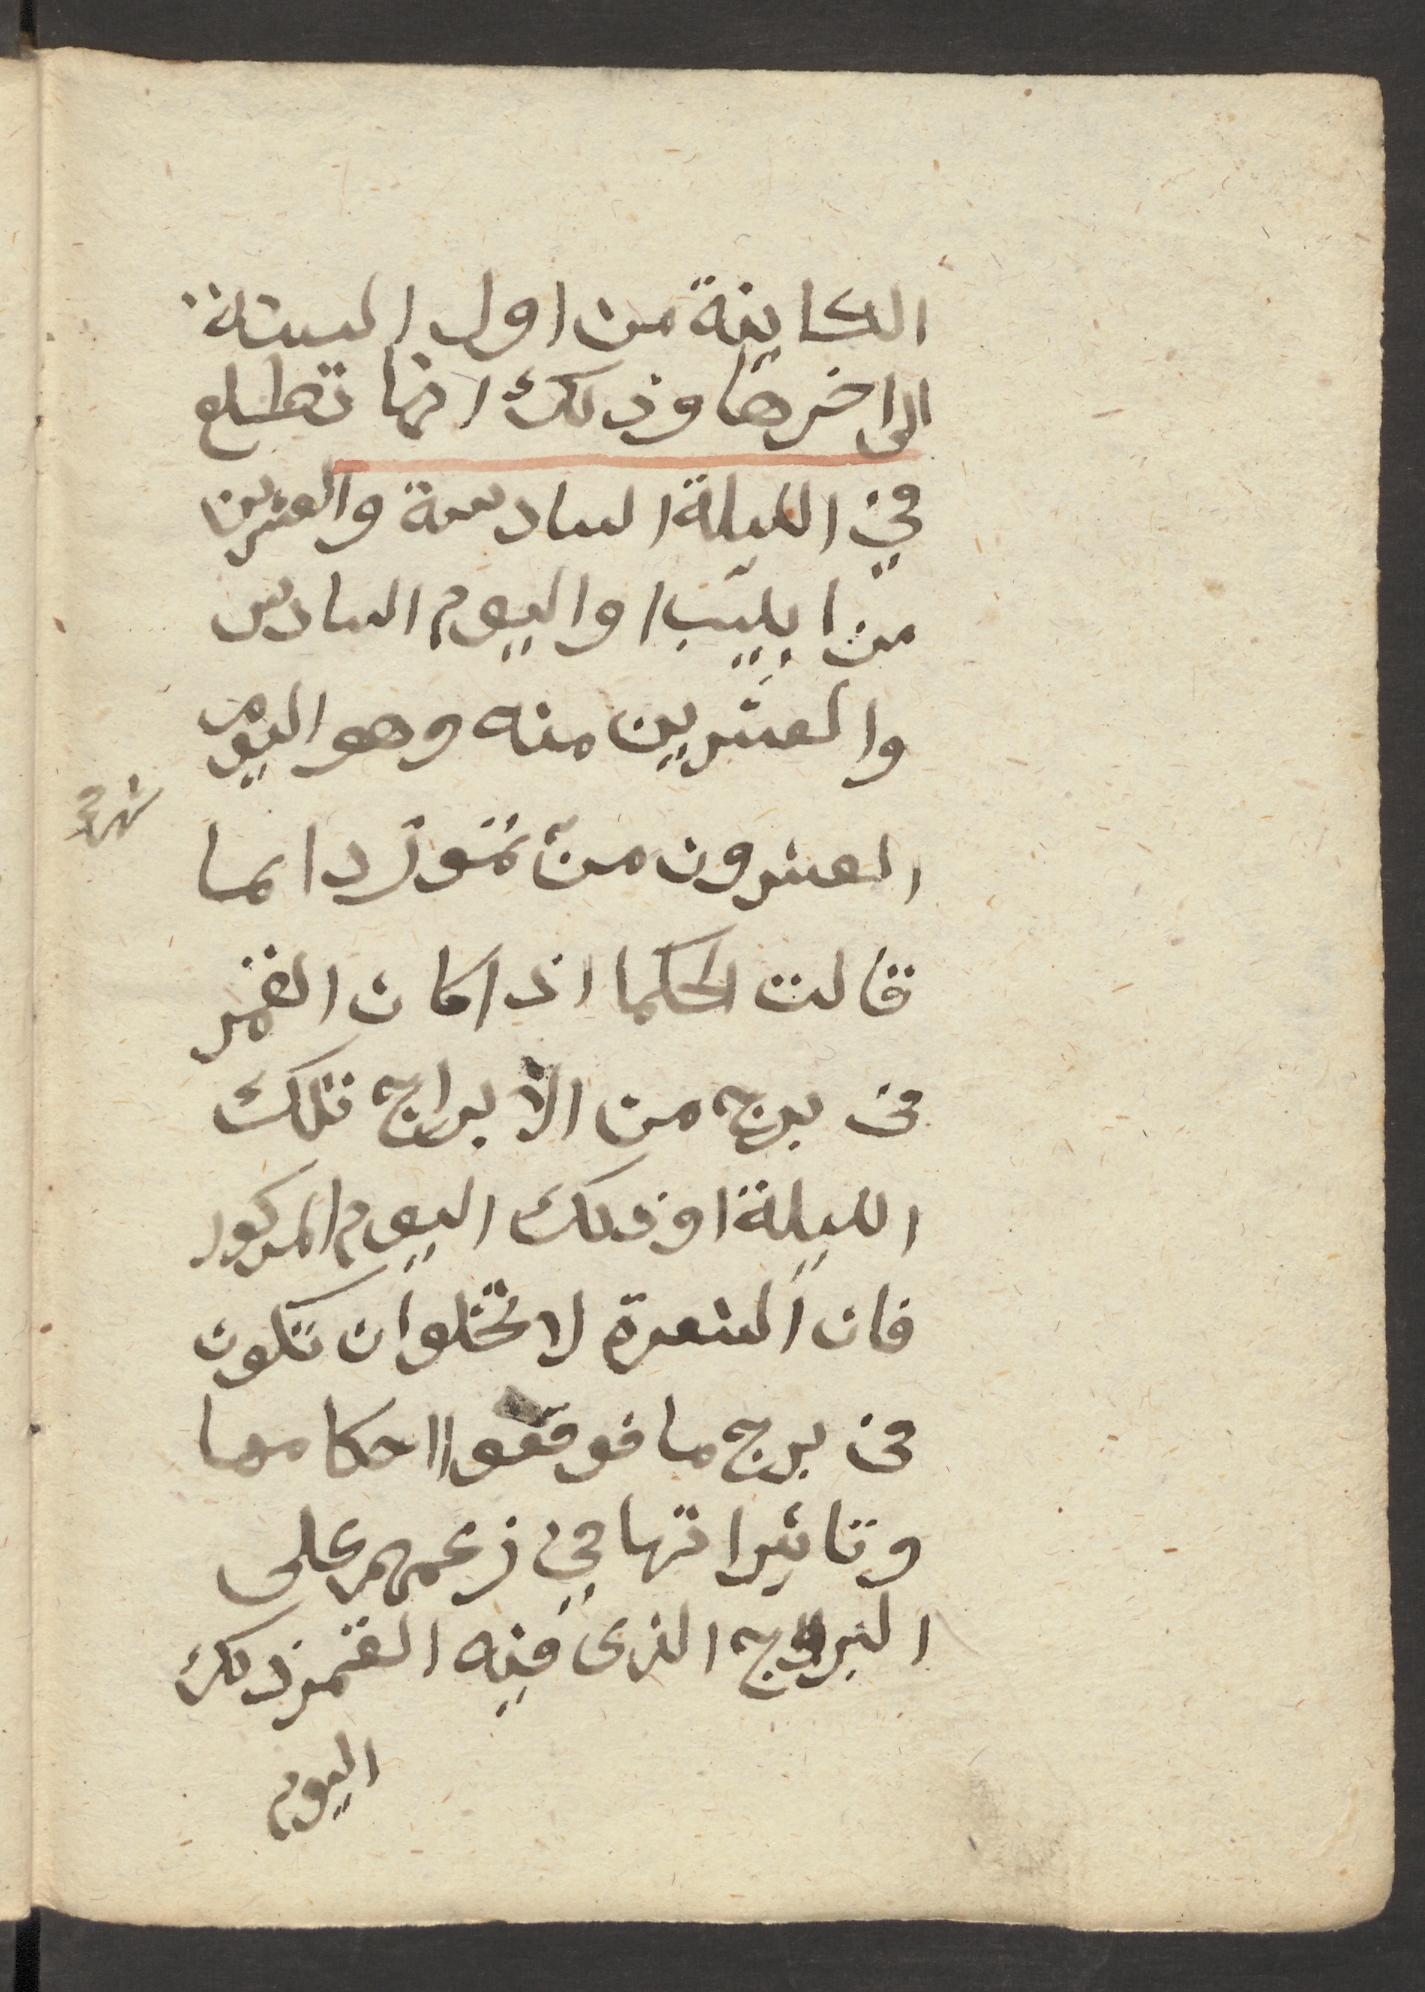 الكاينة من اول السنة
الى اخرها وذلك انها تطلع
في الليلة السادسة والعشرين
من ابيب واليوم السادس
والعشرين منه وهو اليوم
العشرون من تموز دايما
قالت الحكما اذا كان القمر
فى برج من الابراج تلك
الليلة او ذلك اليوم المدكور
فان الشعرة لا تخلوا ان تكون
فى برج ما فوقعوا احكامها
وتاثيراتها في زعمهم على
البراج الذى فيه القمر ذلك
اليوم